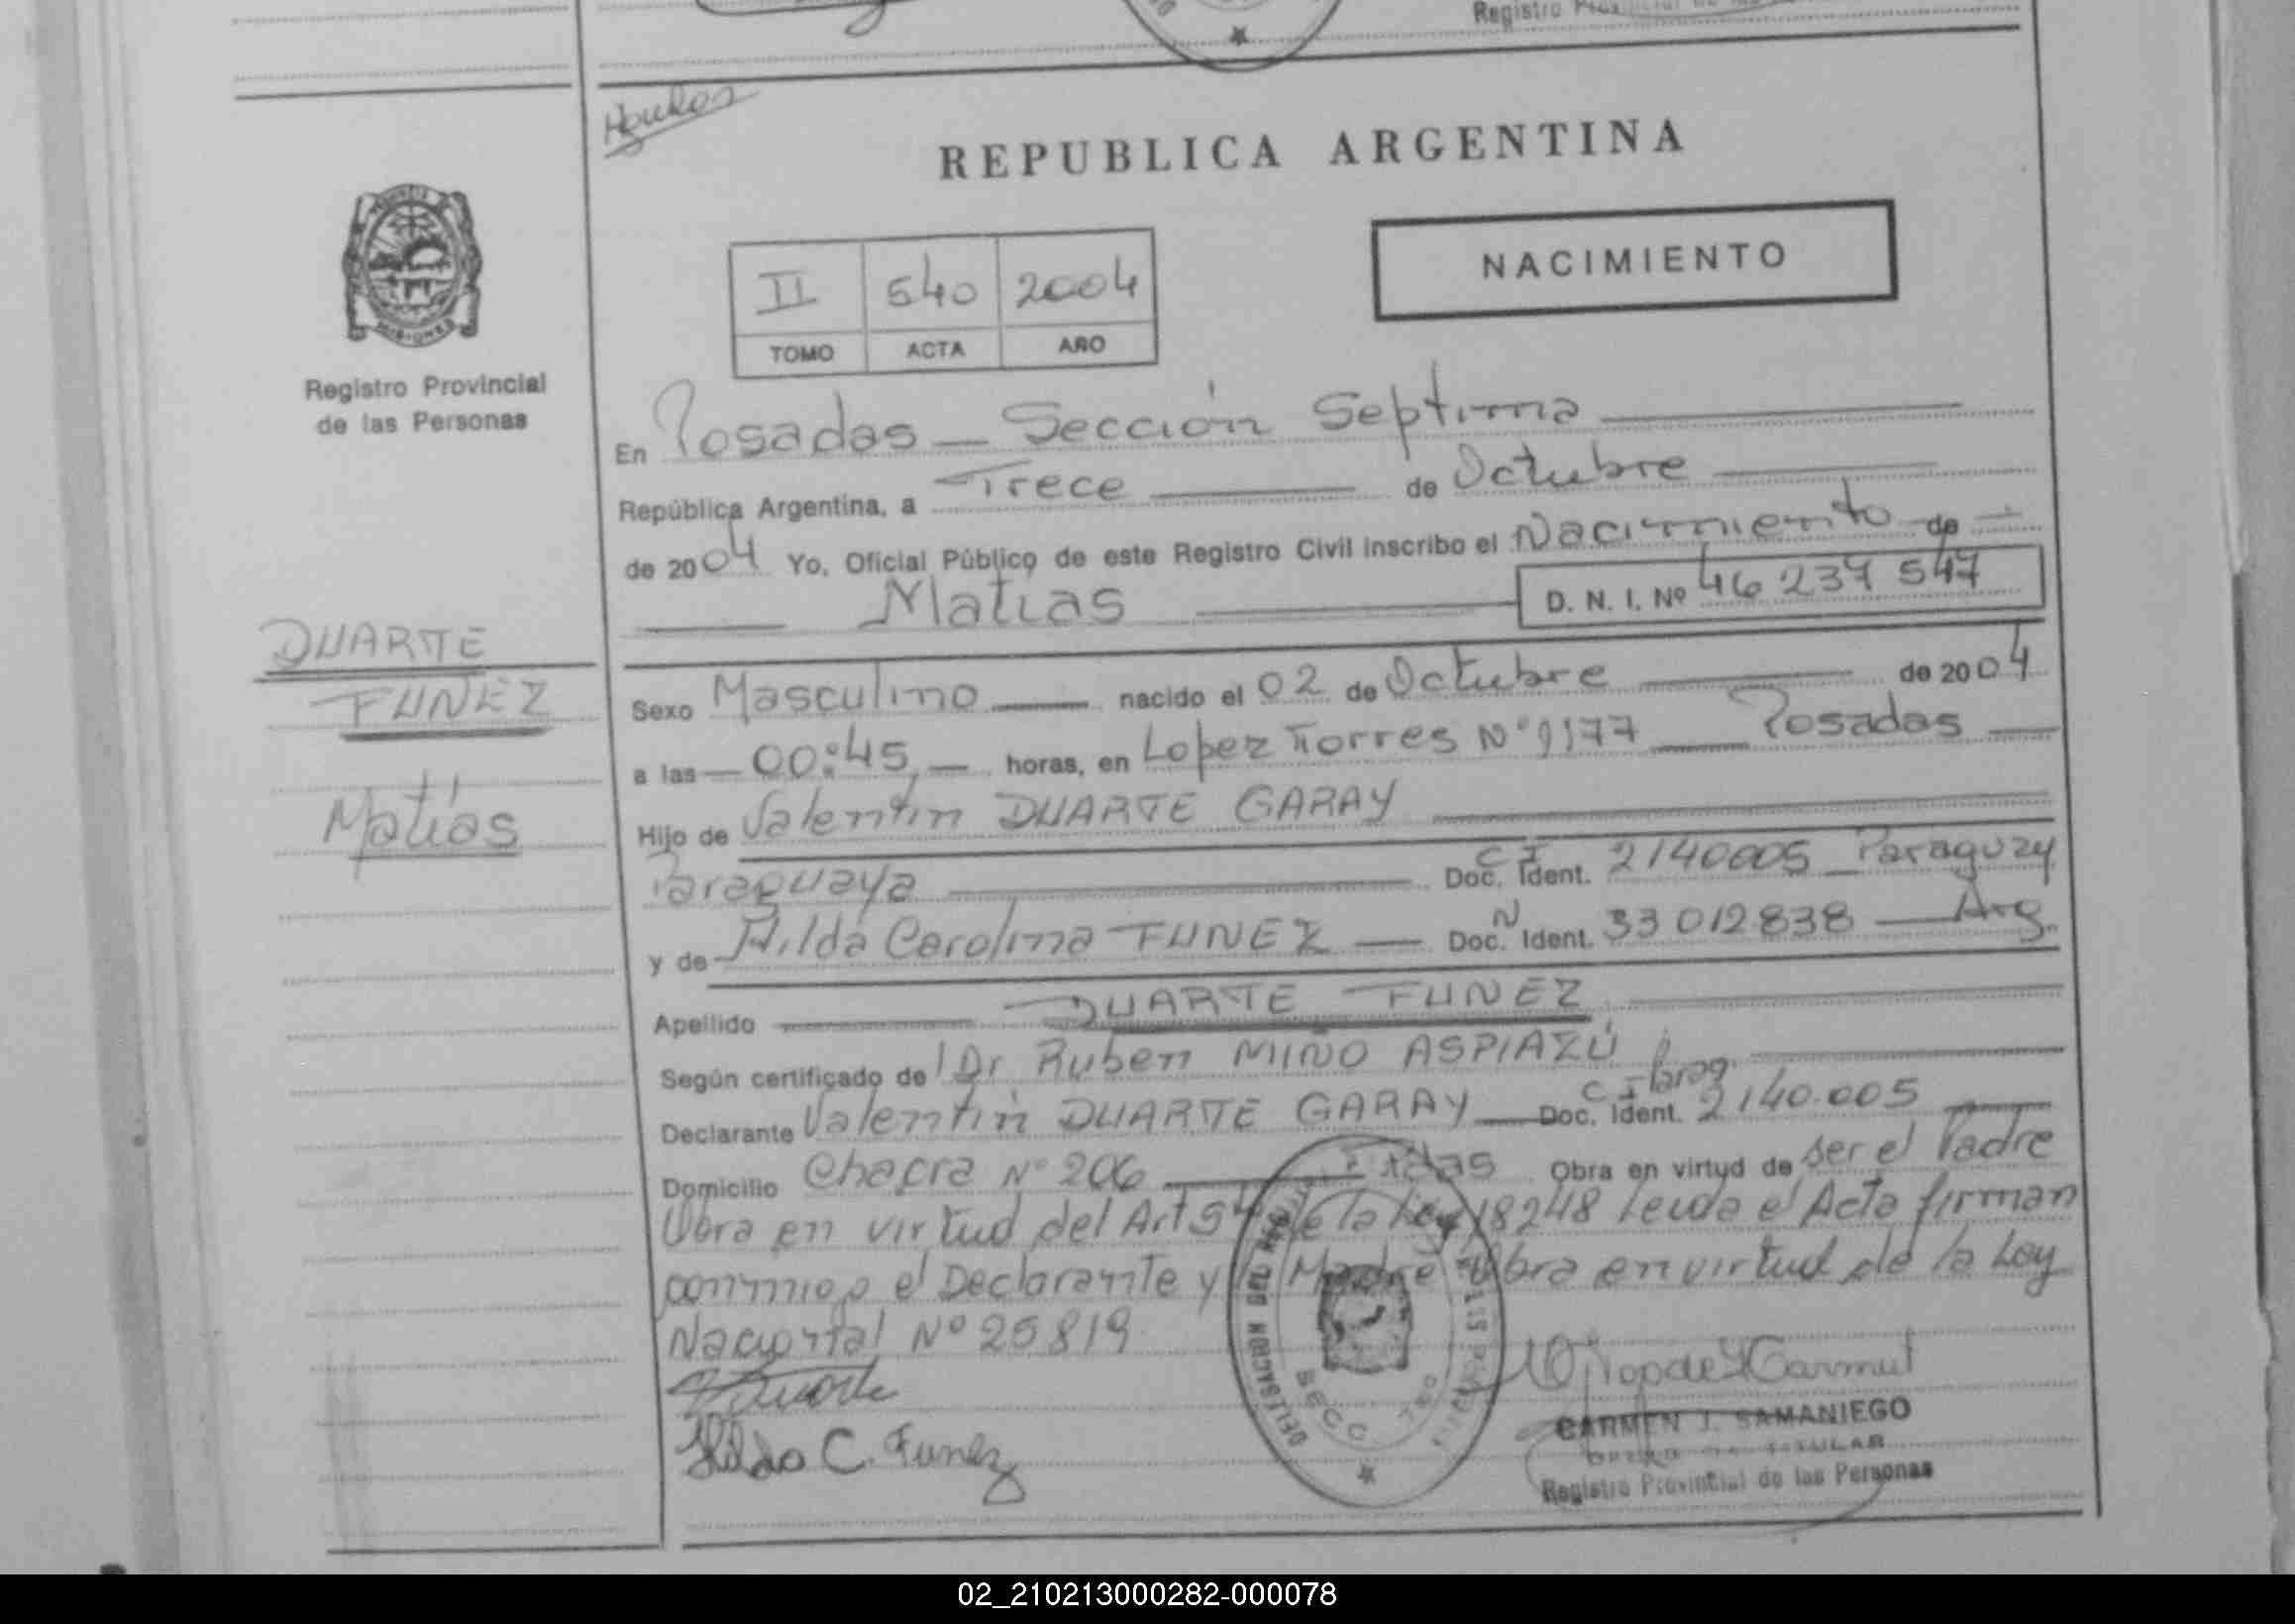 Registro
REPUBLICA ARGENTINA
NACIMIENTO
II 540 2004
TOMO ACTA AÑO
MISIONES
Registro Provincial
de las Personas
En Posadas — Sección Septima
República Argentina, a Trece de Octubre
de 2004 Yo, Oficial Público de este Registro Civil inscribo el Nacimiento de
Matias D. N. I. Nº 46 237 547
DUARTE
FUNEZ
Matías
Sexo Masculino nacido el 02 de Octubre de 2004
a las 00:45 horas, en Lopez Torres Nº 1177 Posadas
Hijo de Valentin DUARTE GARAY
Paraguaya C I Doc. Ident. 2140005 Paraguay
y de Hilda Carolina FUNEZ N Doc. Ident. 33 012 838 Arg.
Apellido DUARTE FUNEZ
Según certificado de Dr Ruben MIÑO ASPIAZÚ
Declarante Valentin DUARTE GARAY C I Parag. Doc. Ident. 2140.005
Domicilio Chacra Nº 206 Pdas Obra en virtud de ser el Padre
Obra en virtud del Art 5º de la Ley 18248 leida el Acta firman
conmigo el Declarante y la Madre Obra en virtud de la Ley
Nacional Nº 25819
Duarte
Hilda C. Funez
SECC 7
CARMEN J. SAMANIEGO
TITULAR
Registro Provincial de las Personas
02_210213000282-000078